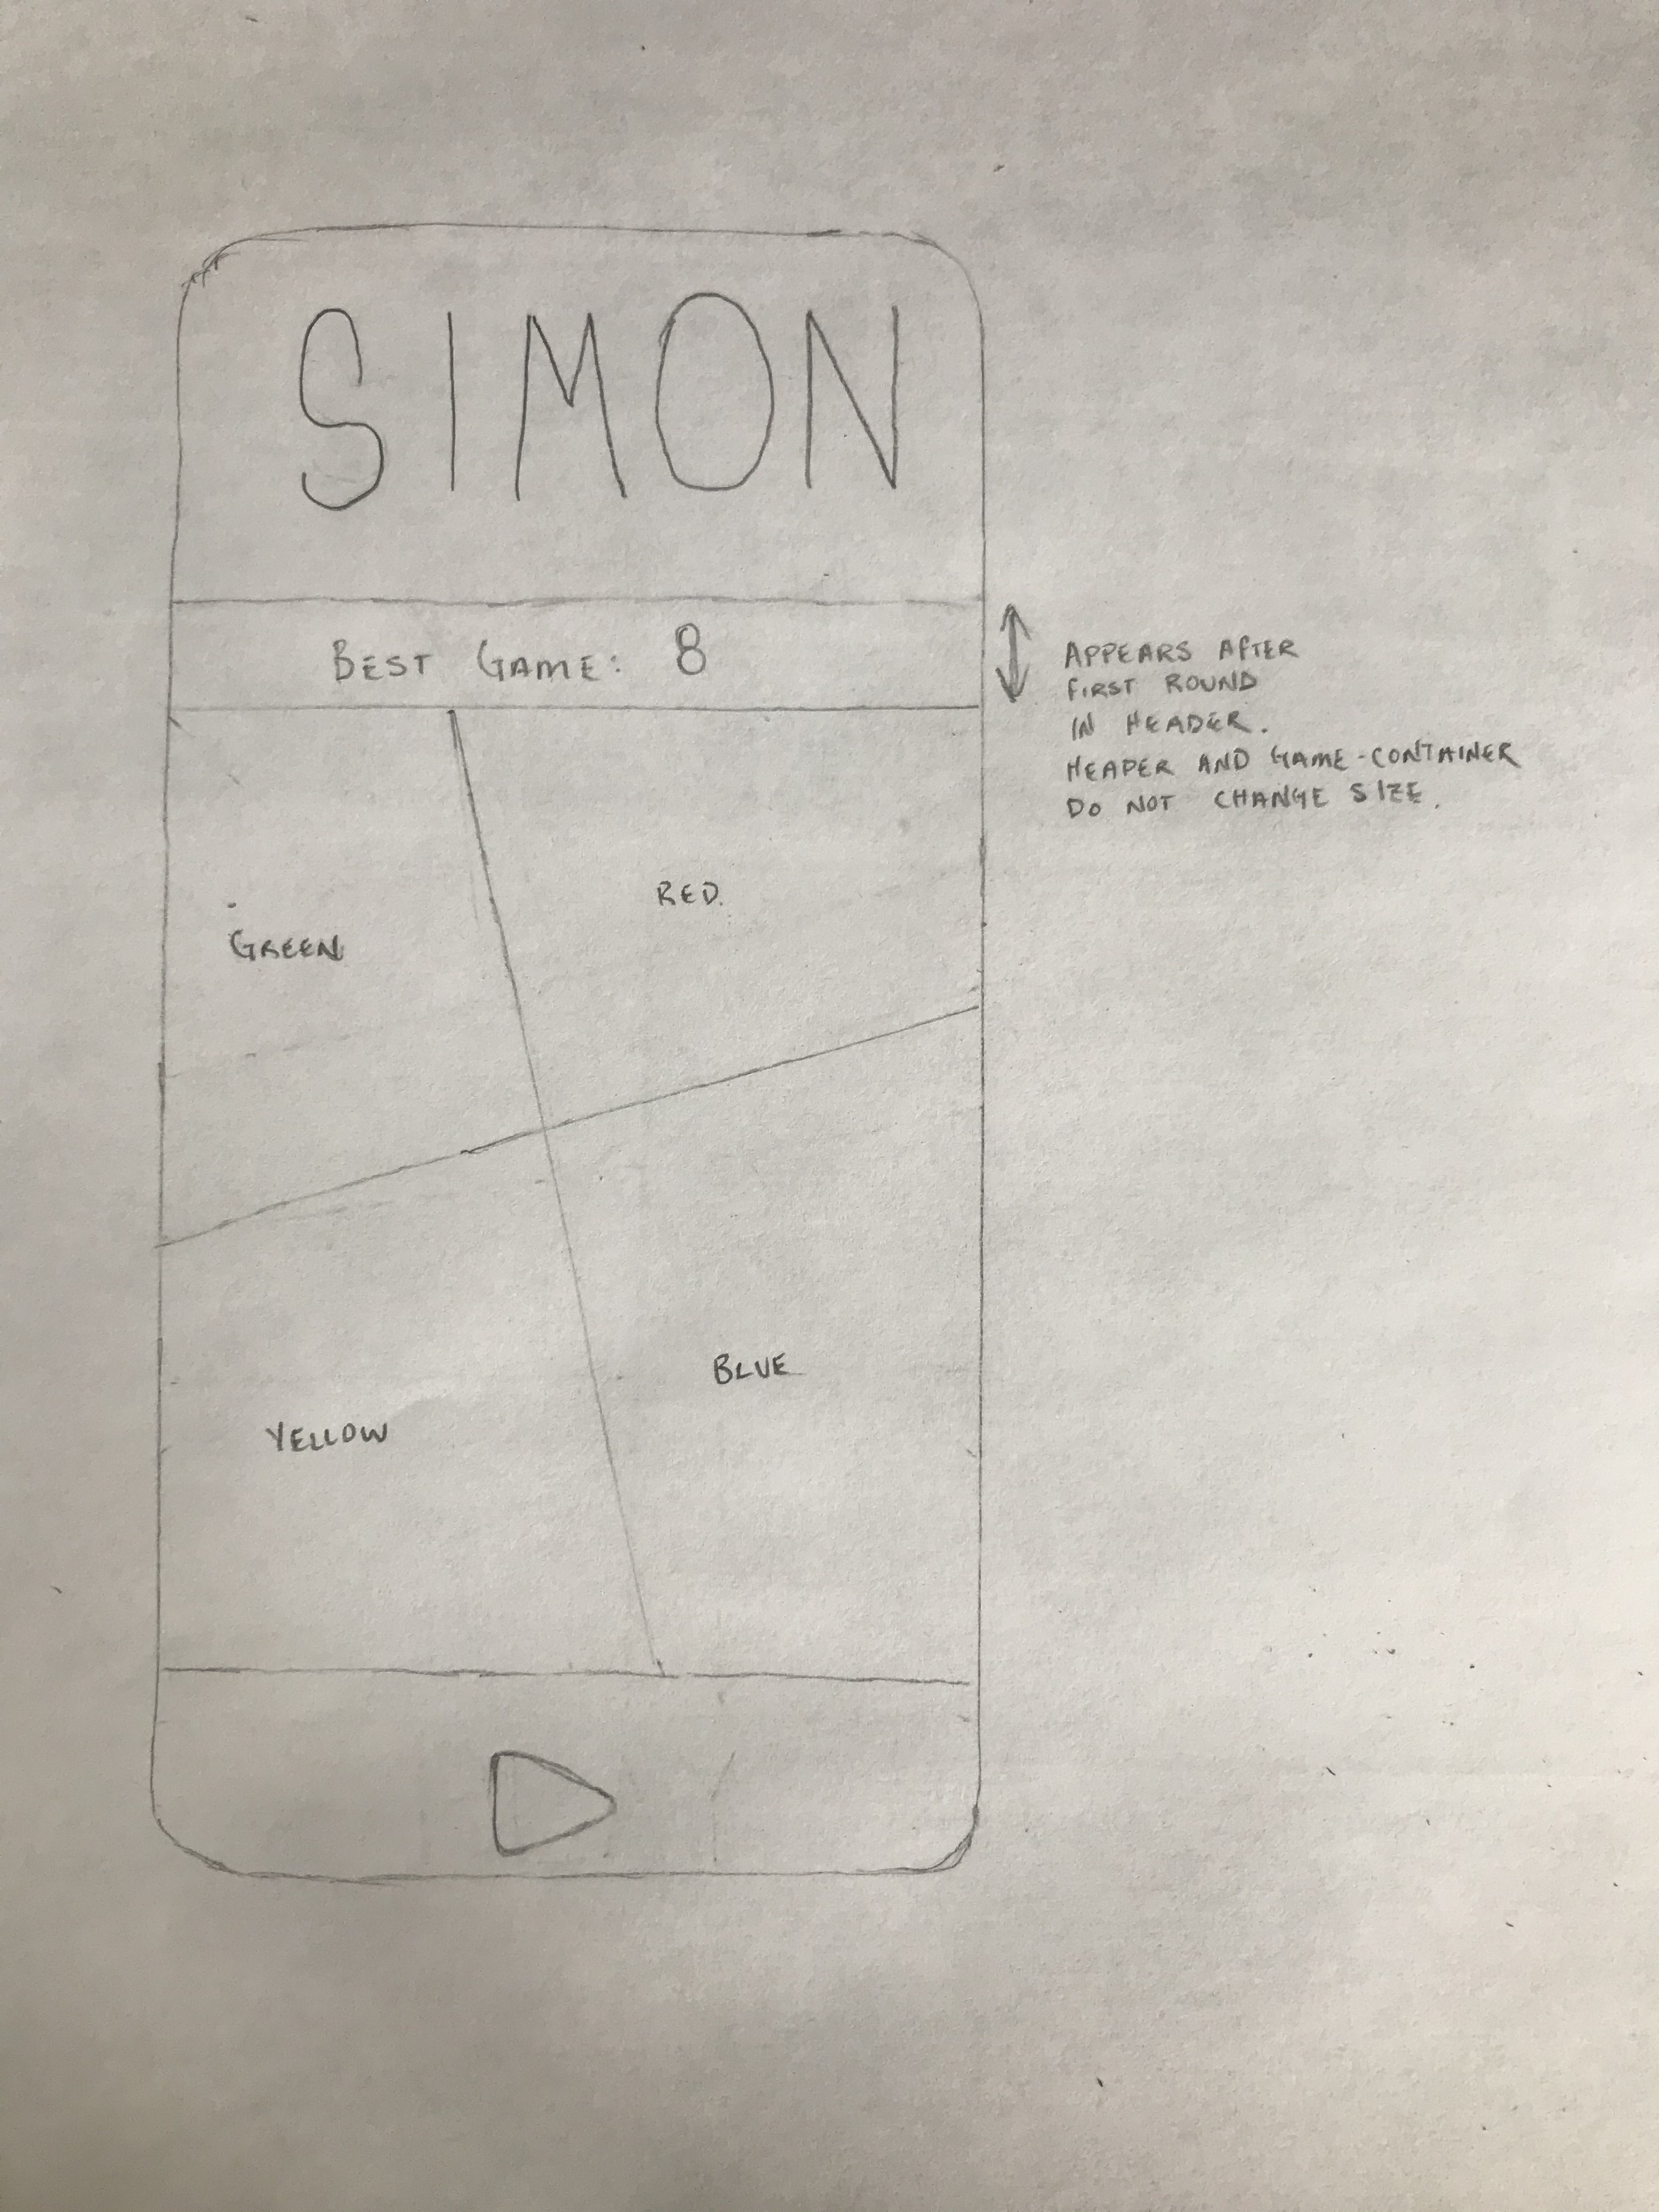 SIMON
BEST GAME: 8
APPEARS AFTER
FIRST ROUND
IN HEADER.
HEAPER AND GAME-CONTAINER
DO NOT CHANGE SIZE.
RED.
GREEN
BLUE
YELLOW